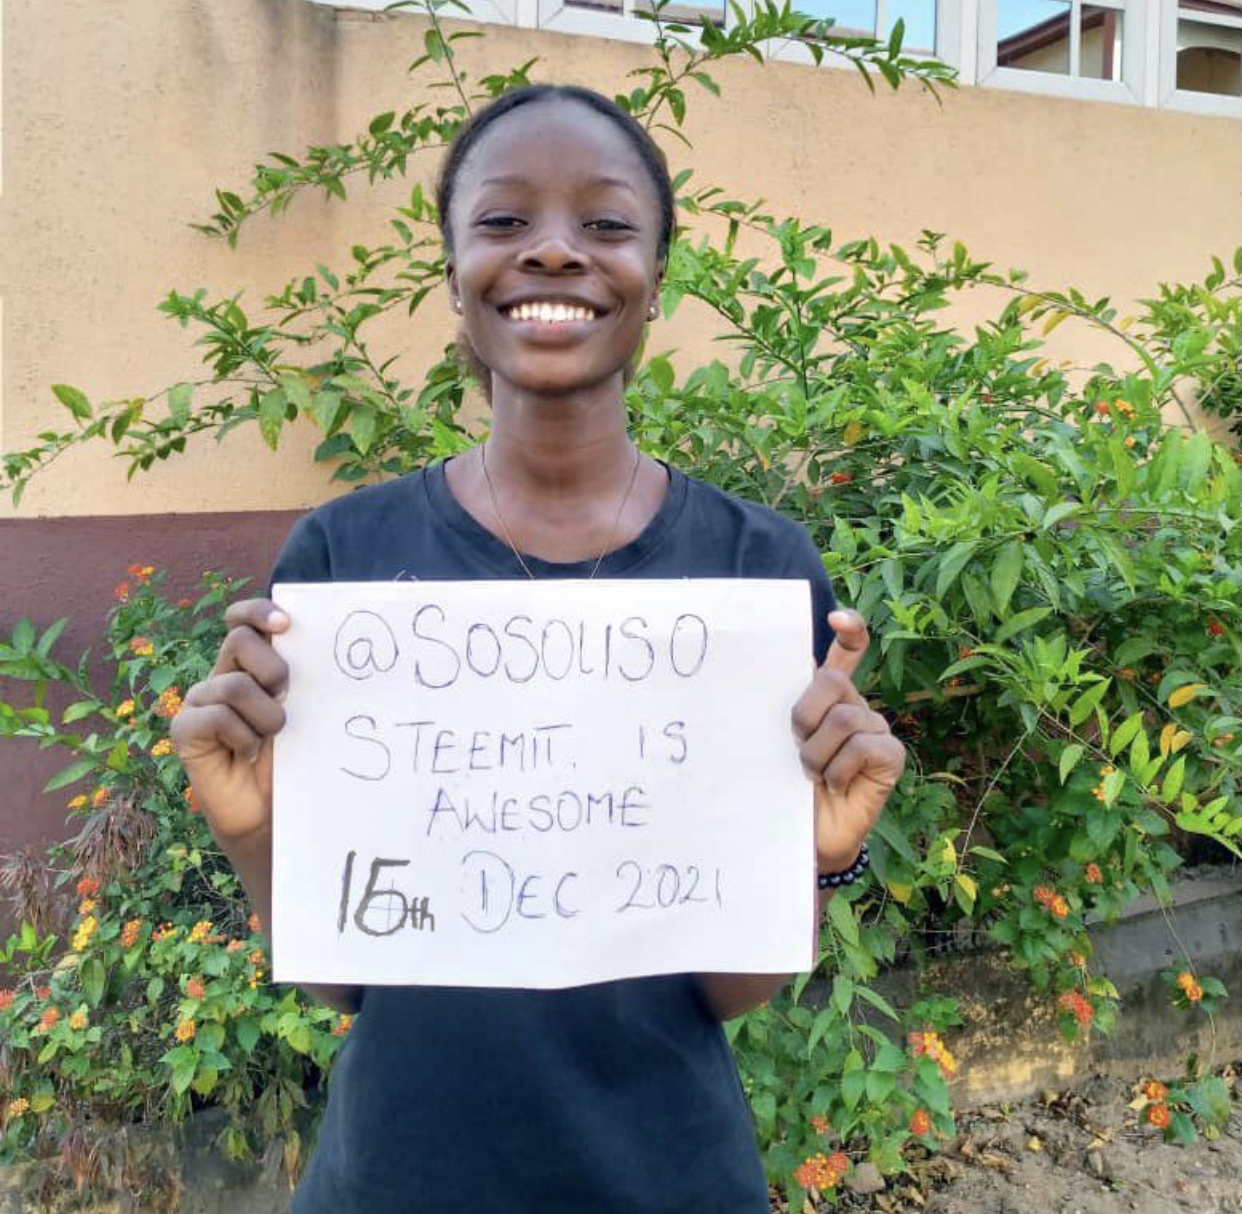 @SOSOLISO
STEEMIT. IS
AWESOME
15th DEC 2021